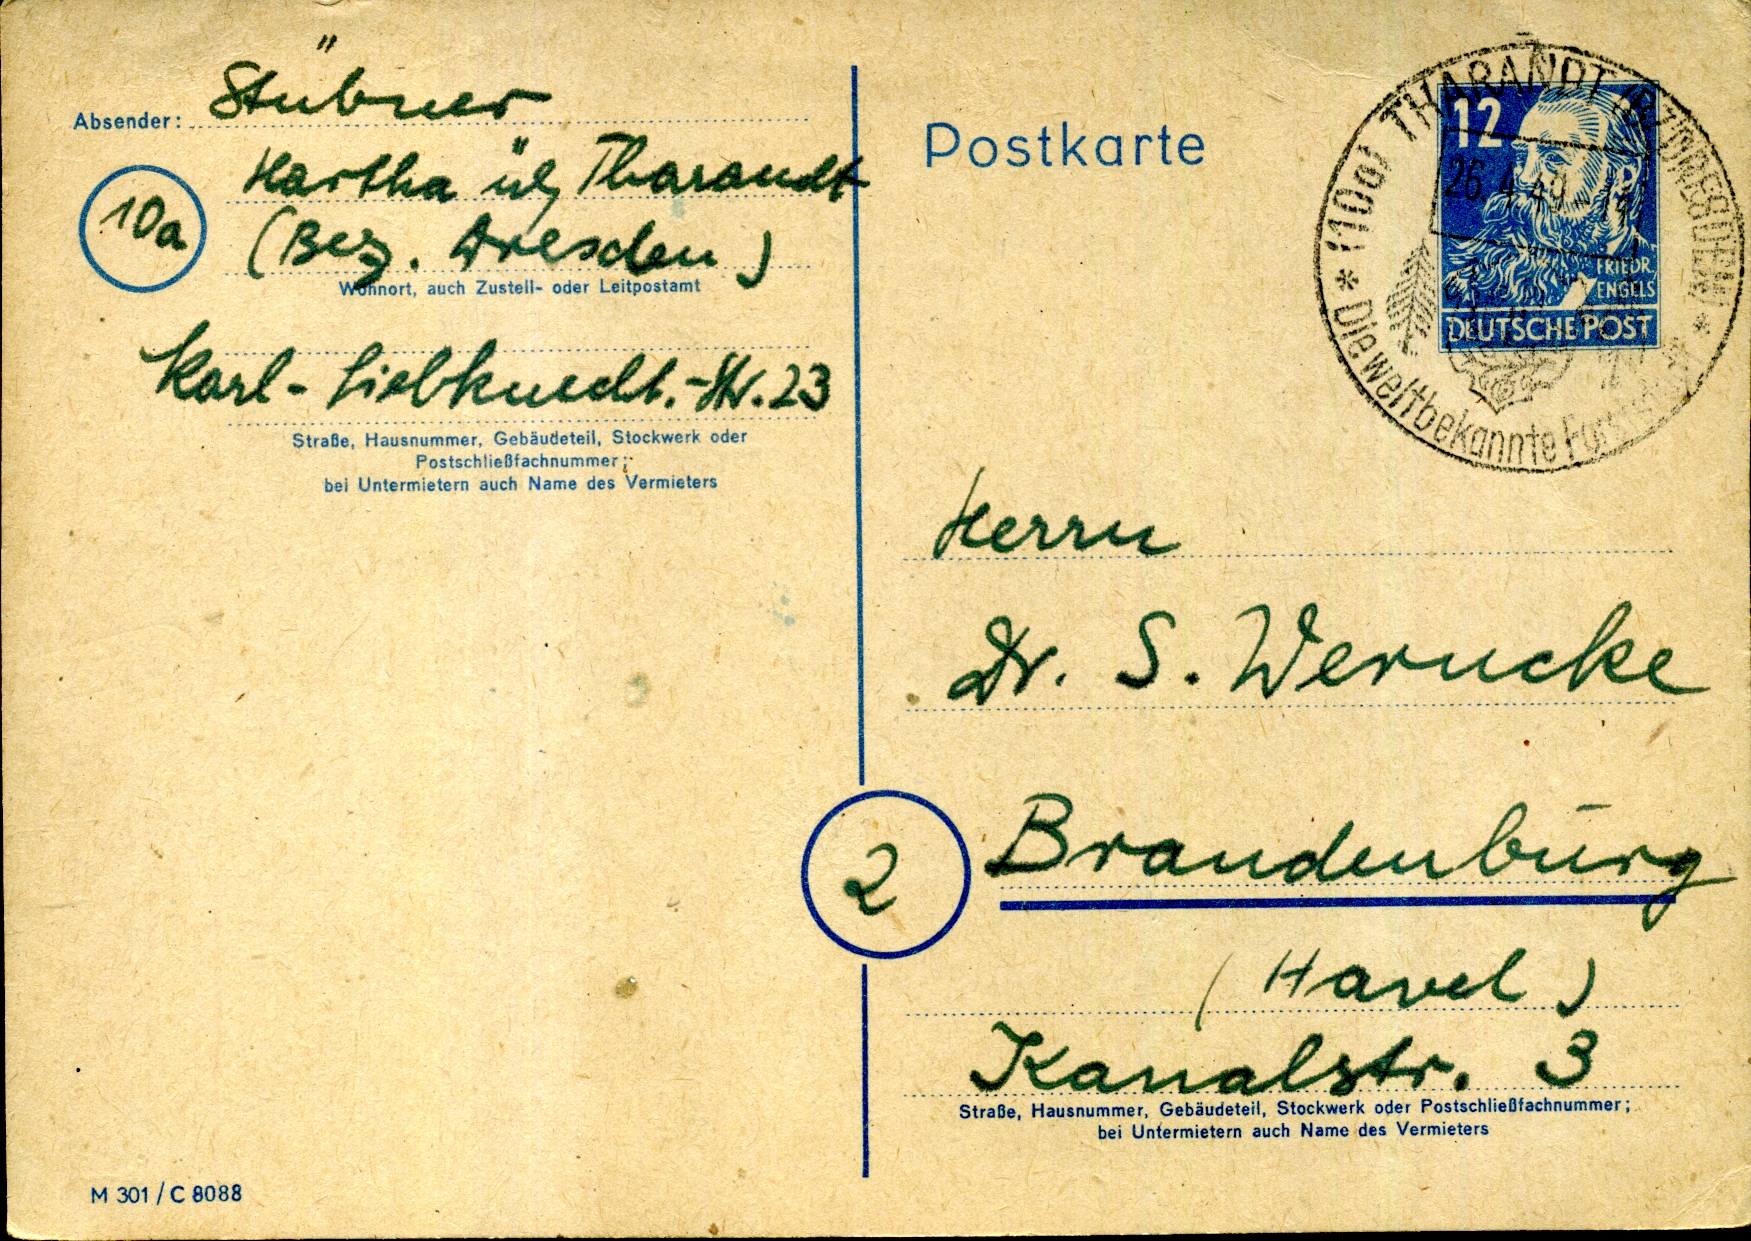 Absender: Stübner
Hartha üb Tharandt
10a
(Bez. Dresden)
Wohnort, auch Zustell- oder Leitpostamt
Karl-Liebknecht.-Str. 23
Straße, Hausnummer, Gebäudeteil, Stockwerk oder
Postschließfachnummer;
bei Untermietern auch Name des Vermieters
M 301 / C 8088
Postkarte
12
FRIEDR.
ENGELS
DEUTSCHE POST
* (10a) THARANDT (BZ DRESDEN) *
26.4.49
Die weltbekannte
Herrn
Dr. S. Wernucke
2
Brandenburg
(Havel)
Kanalstr. 3
Straße, Hausnummer, Gebäudeteil, Stockwerk oder Postschließfachnummer;
bei Untermietern auch Name des Vermieters